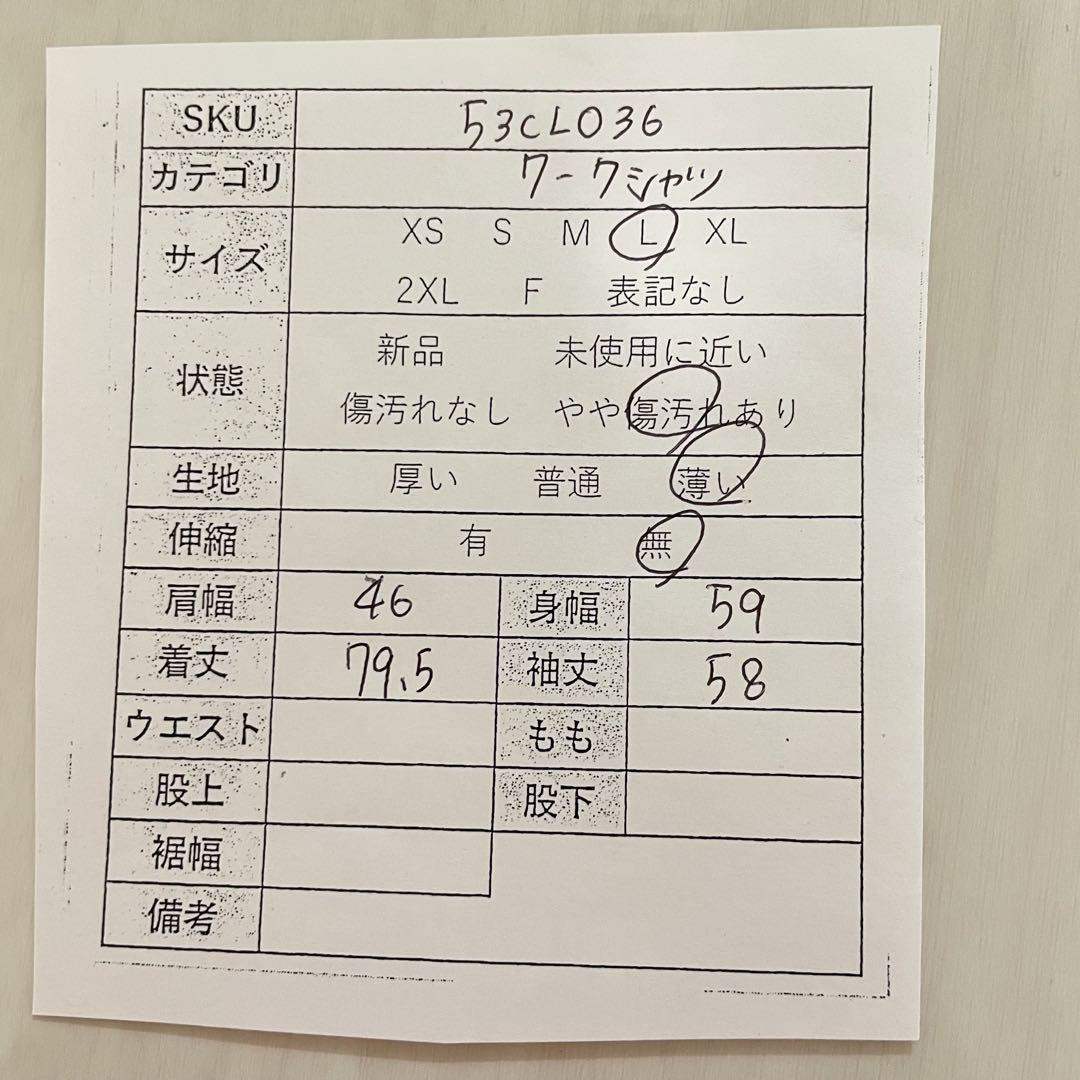 SKU 53CL036
カテゴリ ワークシャツ
サイズ XS S M L XL
2XL F 表記なし
状態 新品 未使用に近い
傷汚れなし やや傷汚れあり
生地 厚い 普通 薄い
伸縮 有 無
肩幅 46 身幅 59
着丈 79.5 袖丈 58
ウエスト もも
股上 股下
裾幅
備考